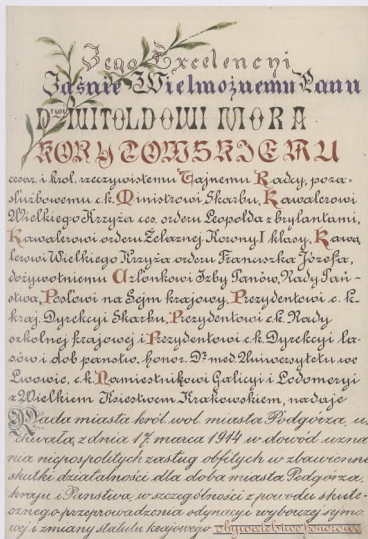 Jego Excelencyi
Jaśnie Wielmożnemu Panu
Drwi WITOLDOWI MORA
KORYTOWSKIEMU
cesar. i król. rzeczywistemu Tajnemu Radcy, poza-
służbowemu c.k. Ministrowi Skarbu, Kawalerowi
Wielkiego Krzyża ces. orderu Leopolda z brylantami,
Kawalerowi orderu Żelaznej Korony I klasy, Kawa
lerowi Wielkiego Krzyża orderu Franciszka Józefa,
dożywotniemu Członkowi Izby Panów, Rady Pań-
stwa, Posłowi na Sejm krajowy, Prezydentowi c. k.
kraj. Dyrekcyi Skarbu, Prezydentowi c.k. Rady
szkolnej krajowej i Prezydentowi c.k. Dyrekcyi la-
sów i dóbr państw. honor. Dr. med. Uniwersytetu we
Lwowie, c.k. Namiestnikowi Galicyi i Lodomeryi
z Wielkiem Księstwem Krakowskiem, nadaje
Rada miasta król. wol. miasta Podgórza, u
chwałą z dnia 17. marca 1914 w dowód uzna
nia niepospolitych zasług obfitych w zbawienne
skutki działalności dla dobra miasta Podgórza,
kraju i Państwa, w szczególności z powodu skute-
cznego przeprowadzenia ordynacyi wyborczej sejmo
wej i zmiany statutu krajowego obywatelstwo honorowe